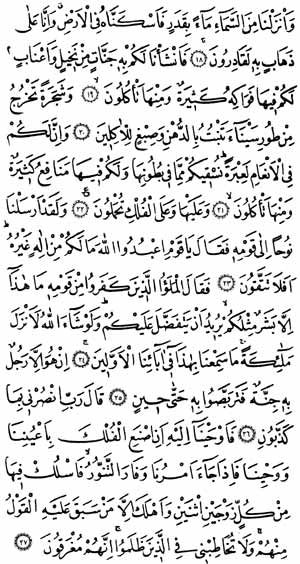 وَاَنْزَلْنَا مِنَ السَّمَٓاءِ مَٓاءً بِقَدَرٍ فَاَسْكَنَّاهُ فِي الْاَرْضِ وَاِنَّا عَلٰى
ذَهَابٍ بِهٖ لَقَادِرُونَ ﴿١٨﴾ فَاَنْشَأْنَا لَكُمْ بِهٖ جَنَّاتٍ مِنْ نَخٖيلٍ وَاَعْنَابٍ
لَكُمْ فٖيهَا فَوَاكِهُ كَثٖيرَةٌ وَمِنْهَا تَأْكُلُونَ ﴿١٩﴾ وَشَجَرَةً تَخْرُجُ
مِنْ طُورِ سَيْنَٓاءَ تَنْبُتُ بِالدُّهْنِ وَصِبْغٍ لِلْاٰكِلٖينَ ﴿٢٠﴾ وَاِنَّ لَكُمْ
فِي الْاَنْعَامِ لَعِبْرَةً نُسْقٖيكُمْ مِمَّا فٖي بُطُونِهَا وَلَكُمْ فٖيهَا مَنَافِعُ كَثٖيرَةٌ
وَمِنْهَا تَأْكُلُونَ ﴿٢١﴾ وَعَلَيْهَا وَعَلَى الْفُلْكِ تُحْمَلُونَ ﴿٢٢﴾ وَلَقَدْ اَرْسَلْنَا
نُوحًا اِلٰى قَوْمِهٖ فَقَالَ يَا قَوْمِ اعْبُدُوا اللّٰهَ مَا لَكُمْ مِنْ اِلٰهٍ غَيْرُهُ
اَفَلَا تَتَّقُونَ ﴿٢٣﴾ فَقَالَ الْمَلَؤُا الَّذٖينَ كَفَرُوا مِنْ قَوْمِهٖ مَا هٰذَٓا
اِلَّا بَشَرٌ مِثْلُكُمْ يُرٖيدُ اَنْ يَتَفَضَّلَ عَلَيْكُمْ وَلَوْ شَٓاءَ اللّٰهُ لَاَنْزَلَ
مَلٰٓئِكَةً مَا سَمِعْنَا بِهٰذَا فٖٓي اٰبَٓائِنَا الْاَوَّلٖينَ ﴿٢٤﴾ اِنْ هُوَ اِلَّا رَجُلٌ
بِهٖ جِنَّةٌ فَتَرَبَّصُوا بِهٖ حَتّٰى حٖينٍ ﴿٢٥﴾ قَالَ رَبِّ انْصُرْنٖي بِمَا
كَذَّبُونِ ﴿٢٦﴾ فَاَوْحَيْنَٓا اِلَيْهِ اَنِ اصْنَعِ الْفُلْكَ بِاَعْيُنِنَا
وَوَحْيِنَا فَاِذَا جَٓاءَ اَمْرُنَا وَفَارَ التَّنُّورُ فَاسْلُكْ فٖيهَا
مِنْ كُلٍّ زَوْجَيْنِ اثْنَيْنِ وَاَهْلَكَ اِلَّا مَنْ سَبَقَ عَلَيْهِ الْقَوْلُ
مِنْهُمْ وَلَا تُخَاطِبْنٖي فِي الَّذٖينَ ظَلَمُوا اِنَّهُمْ مُغْرَقُونَ ﴿٢٧﴾